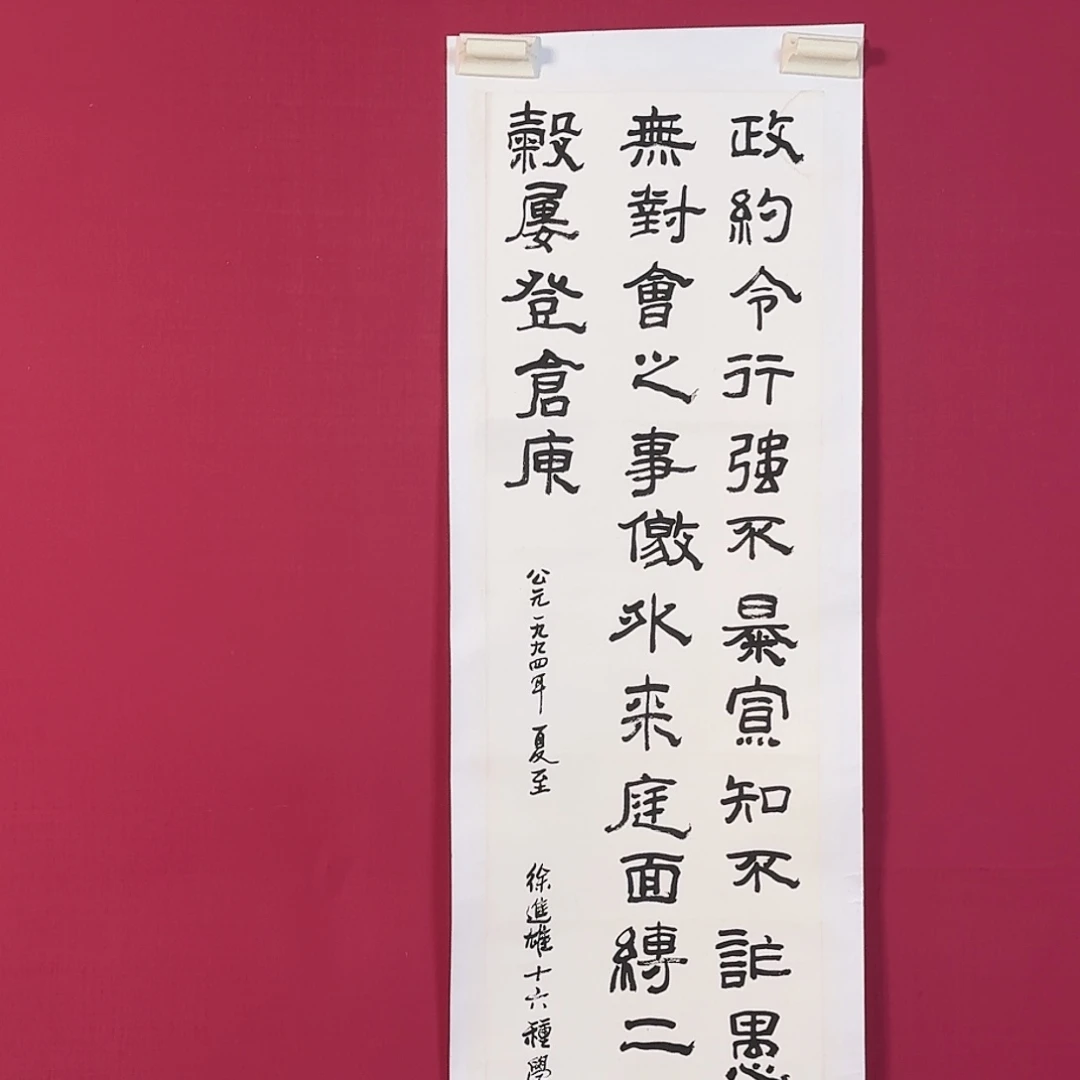 政約令行強不暴寡知不詐愚
無對會之事儌外来庭面縛二
穀屢登倉庾
公元一九九四年夏至 徐進雄十六種學